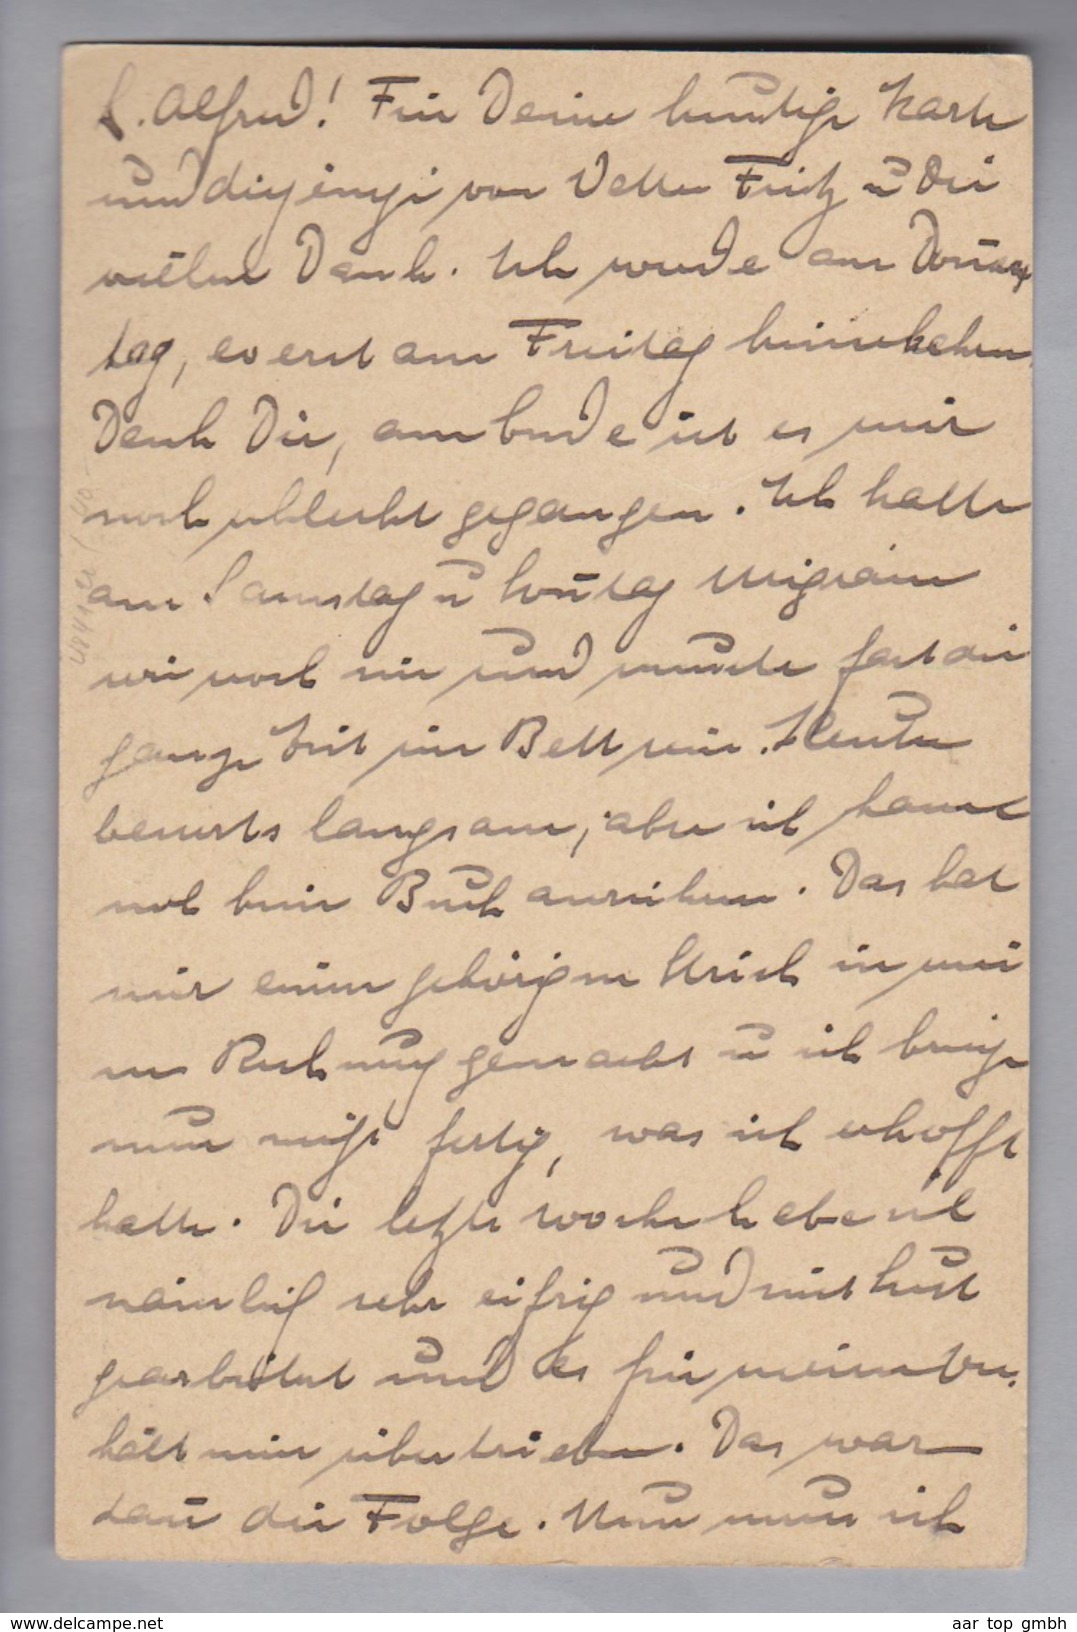 L. Alfred! Für Deine heutige Karte
und diejenige von Vetter Fritz u Dir
vielen Dank. Ich werde am Don̄ers
tag, ev erst am Freitag heimkehren.
Denk Dir, am Ende ist es mir
noch schlecht gegangen. Ich hatte
am Samstag u Son̄tag Migräne
wie noch nie und musste fast die
ganze Zeit im Bett sein. Heute
besserts langsam, aber ich kann
noch kein Buch ansehen. Das hat
mir einen gehörigen Strich in mei
ne Rechnung gemacht u ich bringe
nun nicht fertig, was ich erhofft
hatte. Die letzte Woche habe ich
nämlich sehr eifrig und mit Lust
gearbeitet und es für meinen Zu-
hält mir übertrieben. Das war
dan̄ die Folge. Nun muss ich
www.delcampe.net
aar top gmbh